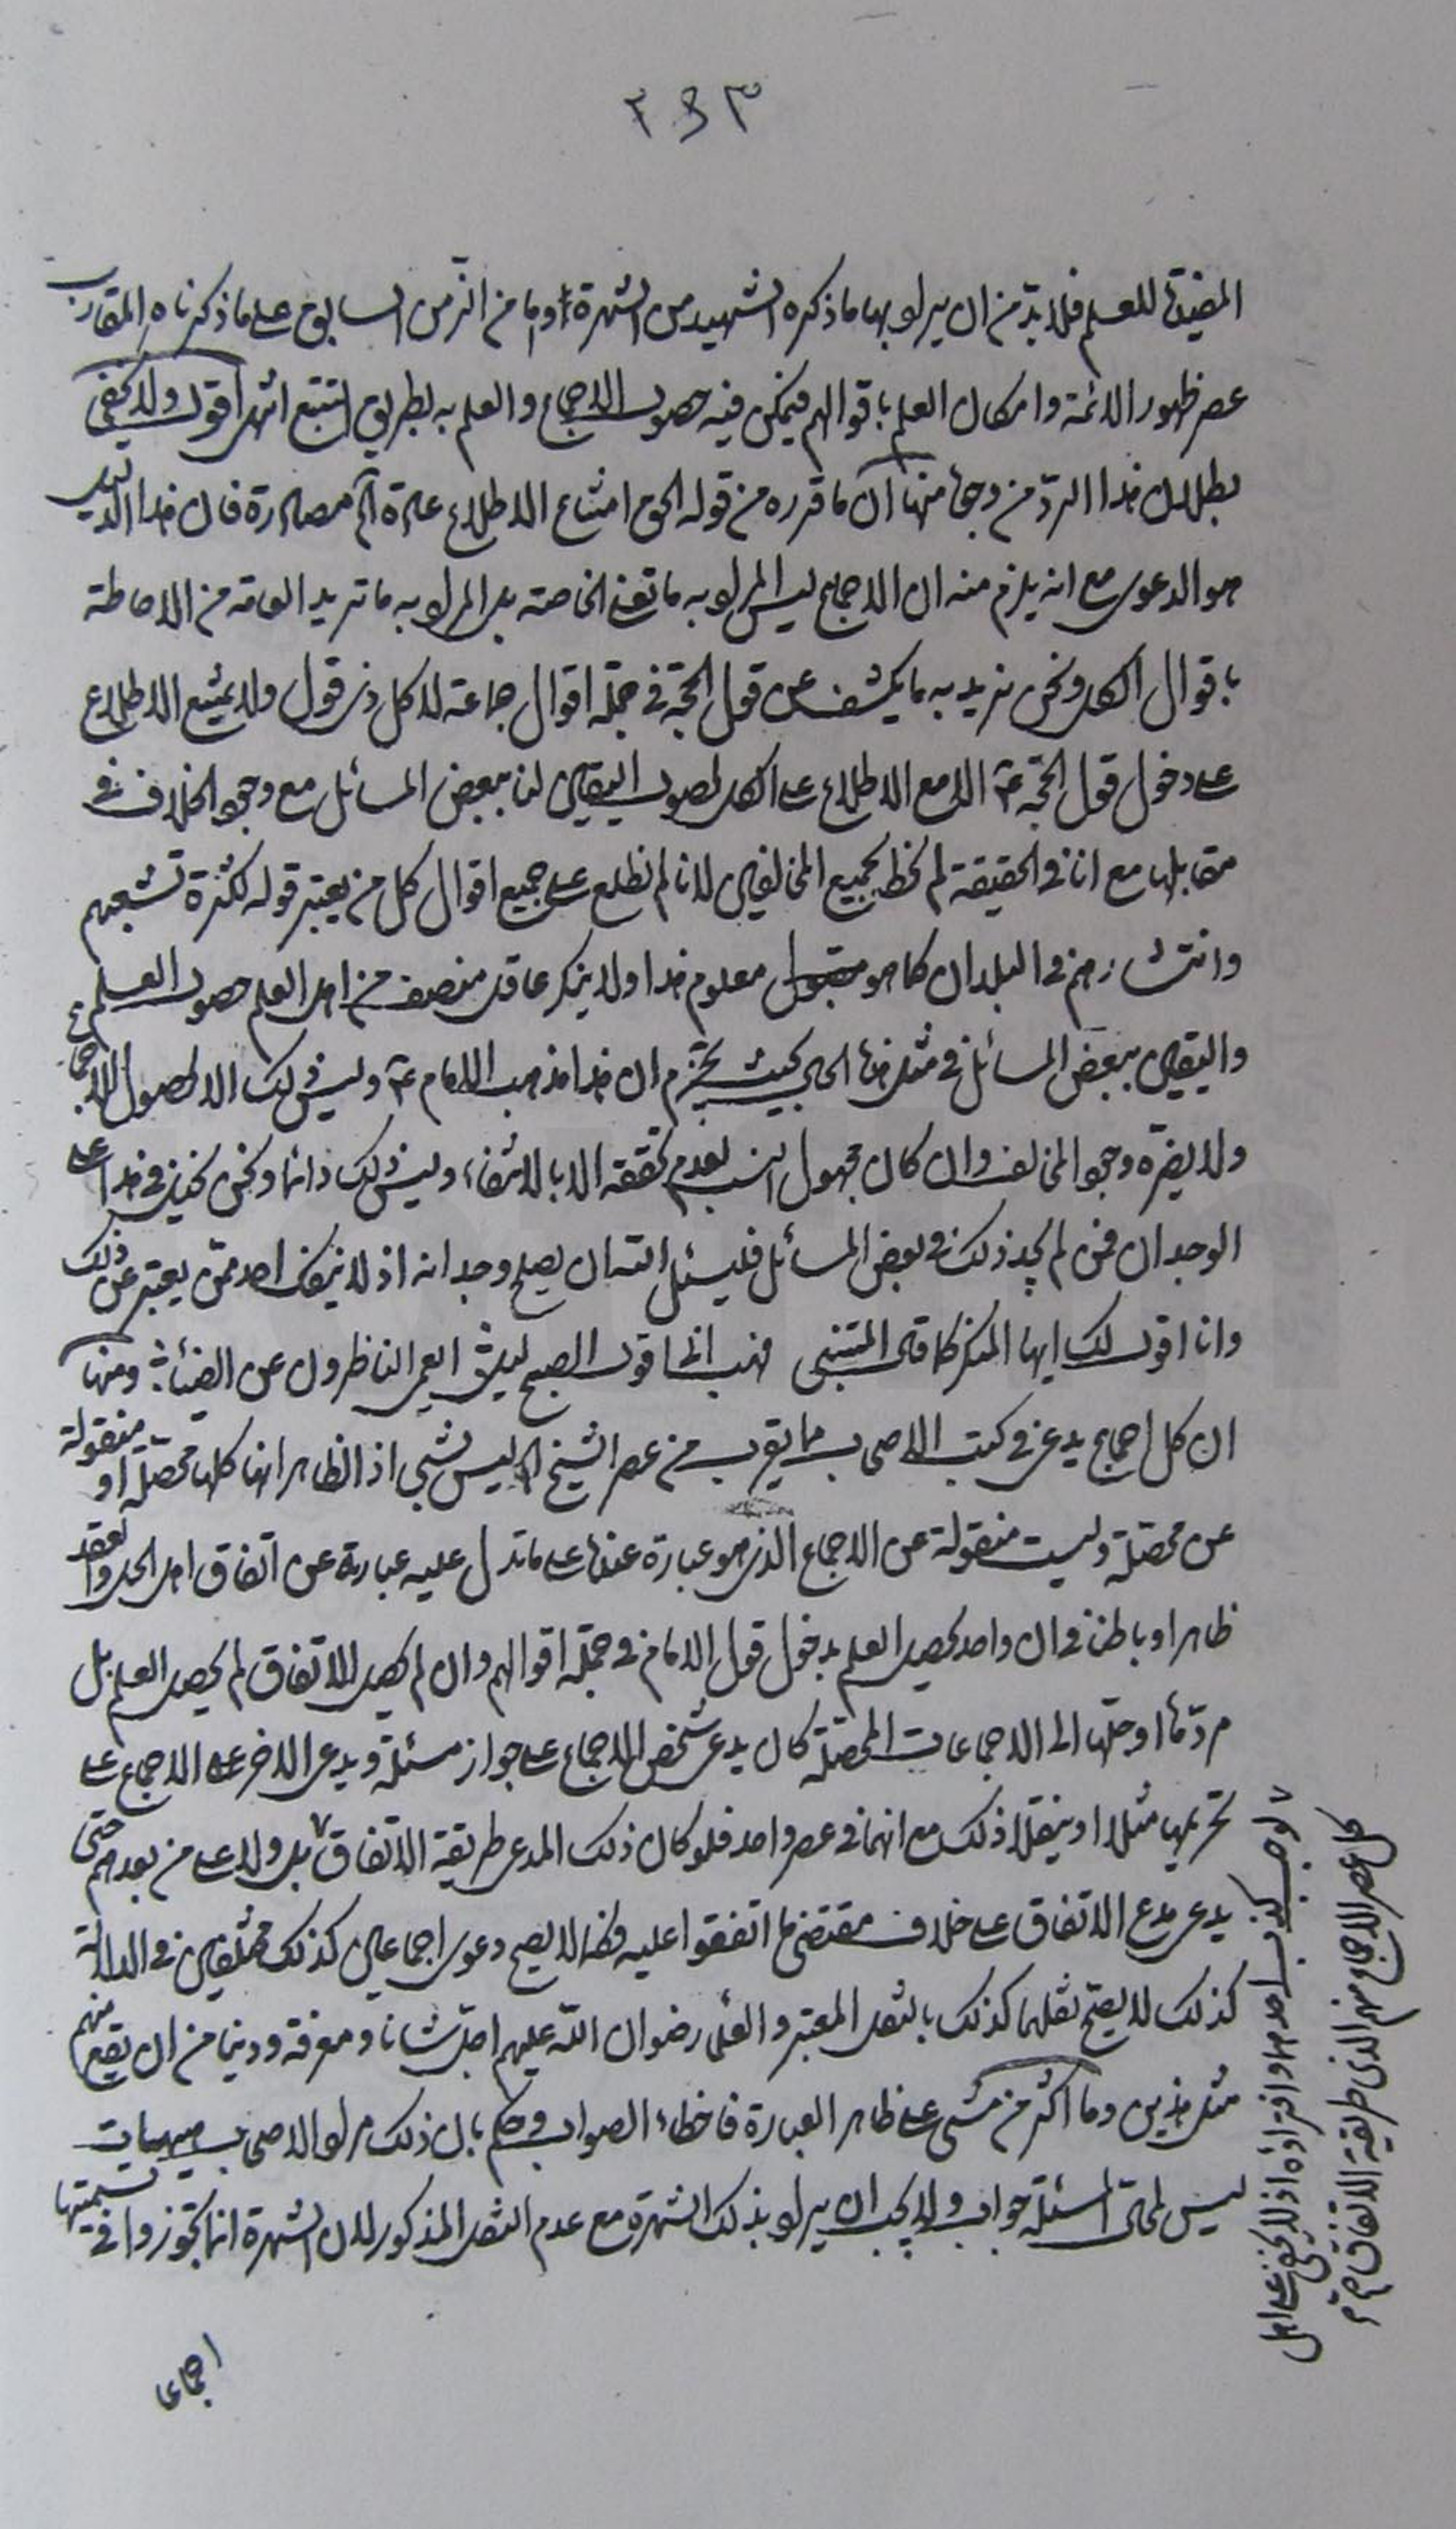 ٣٤٣
المفيدة للعلم فلا بد من ان يراد بها ما ذكره الشهيد من الشهرة واما من الزمن السابق على ما ذكرناه المقارب
عصر ظهور الائمة وامكان العلم باقوالهم فيمكن فيه حصول الاجماع والعلم به بطريق التتبع انتهى اقول ولا يخفى
بطلان هذا الرد من وجوه منها ان ما قرره من قوله الحق امتناع الاطلاع عادة آه مصادرة فان هذا الدليل
هو الدعوى مع انه يلزم منه ان الاجماع ليس المراد به ما تعنى الخاصة بل المراد به ما تريد العامة من الاحاطة
باقوال الكل ونحن نريد به ما يكشف عن قول الحجة في جملة اقوال جماعة لا كل ذى قول ولا يمتنع الاطلاع
على دخول قول الحجة ع الا مع الاطلاع على الكل لحصول اليقين لنا ببعض المسائل مع وجود الخلاف في
مقابلها مع انا في الحقيقة لم نحط بجميع المخالفين لانا لم نطلع على جميع اقوال كل من يعتبر قوله لكثرة تشعبهم
وانتشارهم في البلدان كما هو معلوم هذا ولا ينكر عاقل منصف من اهل العلم حصول العلم
واليقين ببعض المسائل في مثل هذا الحال بحيث يجزم ان هذا مذهب الامام ع وليس ذلك الا لحصول الاجماع
ولا يضره وجود المخالف وان كان مجهول النسب لعدم تحققه الا بالانتفاء وليس ذلك دائما ونحن نحيل في هذا على
الوجدان فمن لم يجد ذلك في بعض المسائل فليسئل الله ان يصلح وجدانه اذ لا ينفك احد ممن يعتبر عن ذلك
وانا اقول لك ايها المنكر كما قال المتنبى فهب انى اقول الصبح ليل ايعمى الناظرون عن الضياء ومنها
ان كل اجماع يدعى في كتب الاصحاب مما يقرب من عصر الشيخ آه ليس بشىء اذ الظاهر انها كلها محصلة او منقولة
عن محصلة وليست منقولة عن الاجماع الذى هو عبارة عندنا على ما تدل عليه عبارته عن اتفاق اهل الحل والعقد
ظاهرا وباطنا في ان واحد يحصل العلم بدخول قول الامام في جملة اقوالهم وان لم يحصل الاتفاق لم يحصل العلم بل
مردها او جلها الى الاجماعات المحصلة كان يدعى شخص الاجماع على جواز مسئلة ويدعى الاخر على الاجماع على
تحريمها مثلا او ينقلا ذلك مع انهما في عصر واحد فلو كان ذلك المدعى طريقة الاتفاق بل ولا على من بعدهم حتى
يدعى مدع الاتفاق على خلاف مقتضى ما اتفقوا عليه فكما لا يصح دعوى اجماعين كذلك مختلفين في الدلالة
كذلك لا يصح نقلهما كذلك بالنقل المعتبر والعلماء رضوان الله عليهم اجل شانا ومعرفة ودينا من ان يقع منهم
مثل هذين وما اكثر من مشى على ظاهر العبارة فاخطاء الصواب وحكم بان ذلك مراد الاصحاب هيهات
ليس لهاتى المسئلة جواب ولا يجب ان يراد بذلك الشهرة مع عدم النقل المذكور لان الشهرة انما تجوزوا في تسميتها
اجماعا
لوجب كذب احدهما وافتراؤه اذ لا يخفى على اهل
العصر الاجماع منهم الذى طريقة الاتفاق